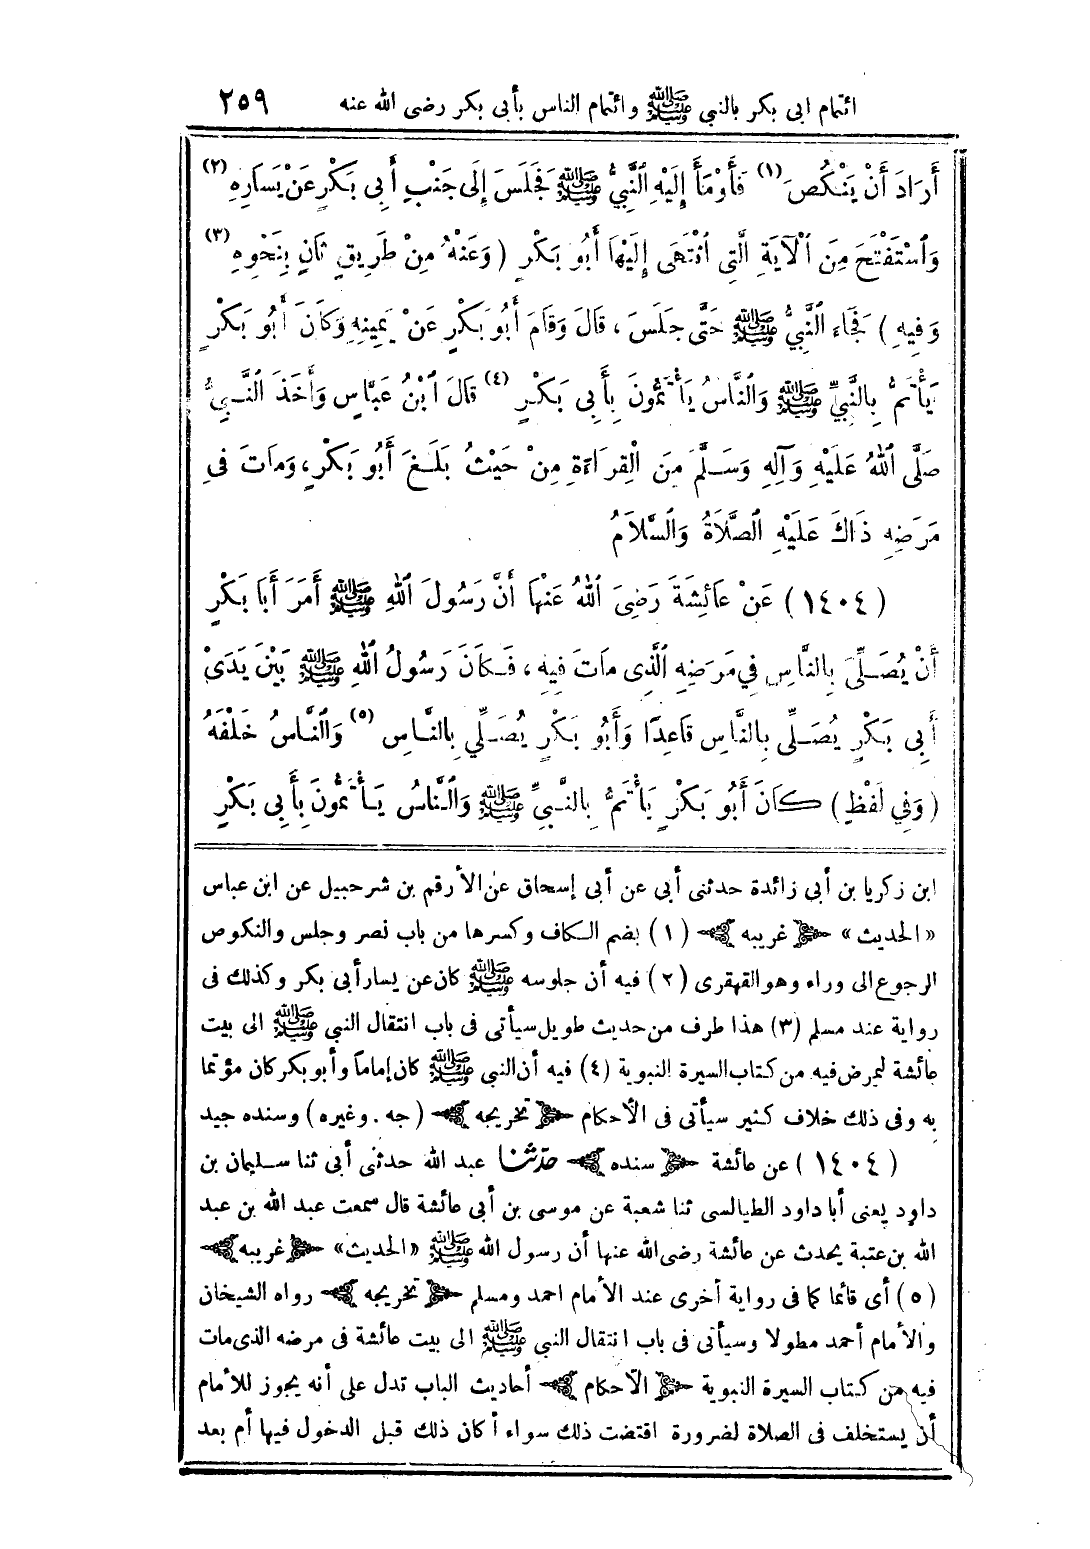 ائتمام ابى بكر بالنبي ﷺ وائتمام الناس بأبى بكر رضى الله عنه ٢٥٩
أَرَادَ أَنْ يَنْكُصَ (١) فَأَوْمَأَ إِلَيْهِ النَّبِيُّ ﷺ فَجَلَسَ إِلَى جَنْبِ أَبِى بَكْرٍ عَنْ يَسَارِهِ (٢)
وَاسْتَفْتَحَ مِنَ الْآيَةِ الَّتِى انْتَهَى إِلَيْهَا أَبُو بَكْرٍ (وَعَنْهُ مِنْ طَرِيقٍ ثَانٍ بِنَحْوِهِ (٣)
وَفِيهِ) فَجَاءَ النَّبِيُّ ﷺ حَتَّى جَلَسَ، قَالَ وَقَامَ أَبُو بَكْرٍ عَنْ يَمِينِهِ وَكَانَ أَبُو بَكْرٍ
يَأْتَمُّ بِالنَّبِيِّ ﷺ وَالنَّاسُ يَأْتَمُّونَ بِأَبِى بَكْرٍ (٤) قَالَ ابْنُ عَبَّاسٍ وَأَخَذَ النَّبِيُّ
صَلَّى اللهُ عَلَيْهِ وَآلِهِ وَسَلَّمَ مِنَ الْقِرَاءَةِ مِنْ حَيْثُ بَلَغَ أَبُو بَكْرٍ، وَمَاتَ فِى
مَرَضِهِ ذَاكَ عَلَيْهِ الصَّلَاةُ وَالسَّلَامُ
(١٤٠٤) عَنْ عَائِشَةَ رَضِىَ اللهُ عَنْهَا أَنَّ رَسُولَ اللهِ ﷺ أَمَرَ أَبَا بَكْرٍ
أَنْ يُصَلِّىَ بِالنَّاسِ فِي مَرَضِهِ الَّذِى مَاتَ فِيهِ، فَكَانَ رَسُولُ اللهِ ﷺ بَيْنَ يَدَىْ
أَبِى بَكْرٍ يُصَلِّى بِالنَّاسِ قَاعِدًا وَأَبُو بَكْرٍ يُصَلِّي بِالنَّاسِ (٥) وَالنَّاسُ خَلْفَهُ
(وَفِي لَفْظٍ) كَانَ أَبُو بَكْرٍ يَأْتَمُّ بِالنَّبِيِّ ﷺ وَالنَّاسُ يَأْتَمُّونَ بِأَبِى بَكْرٍ
ابن زكريا بن أبى زائدة حدثنى أبى عن أبى إسحاق عن الأرقم بن شرحبيل عن ابن عباس
«الحديث» ﴿غريبه﴾ (١) بضم الكاف وكسرها من باب نصر وجلس والنكوص
الرجوع الى وراء وهو القهقرى (٢) فيه أن جلوسه ﷺ كان عن يسار أبى بكر وكذلك فى
رواية عند مسلم (٣) هذا طرف من حديث طويل سيأتى فى باب انتقال النبى ﷺ الى بيت
عائشة ليمرض فيه من كتاب السيرة النبوية (٤) فيه أن النبى ﷺ كان إماماً وأبو بكر كان مؤتما
به وفى ذلك خلاف كثير سيأتى فى الأحكام ﴿تخريجه﴾ (جه. وغيره) وسنده جيد
(١٤٠٤) عن عائشة ﴿سنده﴾ حدّثنا عبد الله حدثنى أبى ثنا سليمان بن
داود يعنى أبا داود الطيالسى ثنا شعبة عن موسى بن أبى عائشة قال سمعت عبد الله بن عبد
الله بن عتبة يحدث عن عائشة رضى الله عنها أن رسول الله ﷺ «الحديث» ﴿غريبه﴾
(٥) أى قائما كما فى رواية أخرى عند الأمام احمد ومسلم ﴿تخريجه﴾ رواه الشيخان
والأمام أحمد مطولا وسيأتى فى باب انتقال النبى ﷺ الى بيت عائشة فى مرضه الذى مات
فيه من كتاب السيرة النبوية ﴿الأحكام﴾ أحاديث الباب تدل على أنه يجوز للأمام
أن يستخلف فى الصلاة لضرورة اقتضت ذلك سواء أكان ذلك قبل الدخول فيها أم بعد